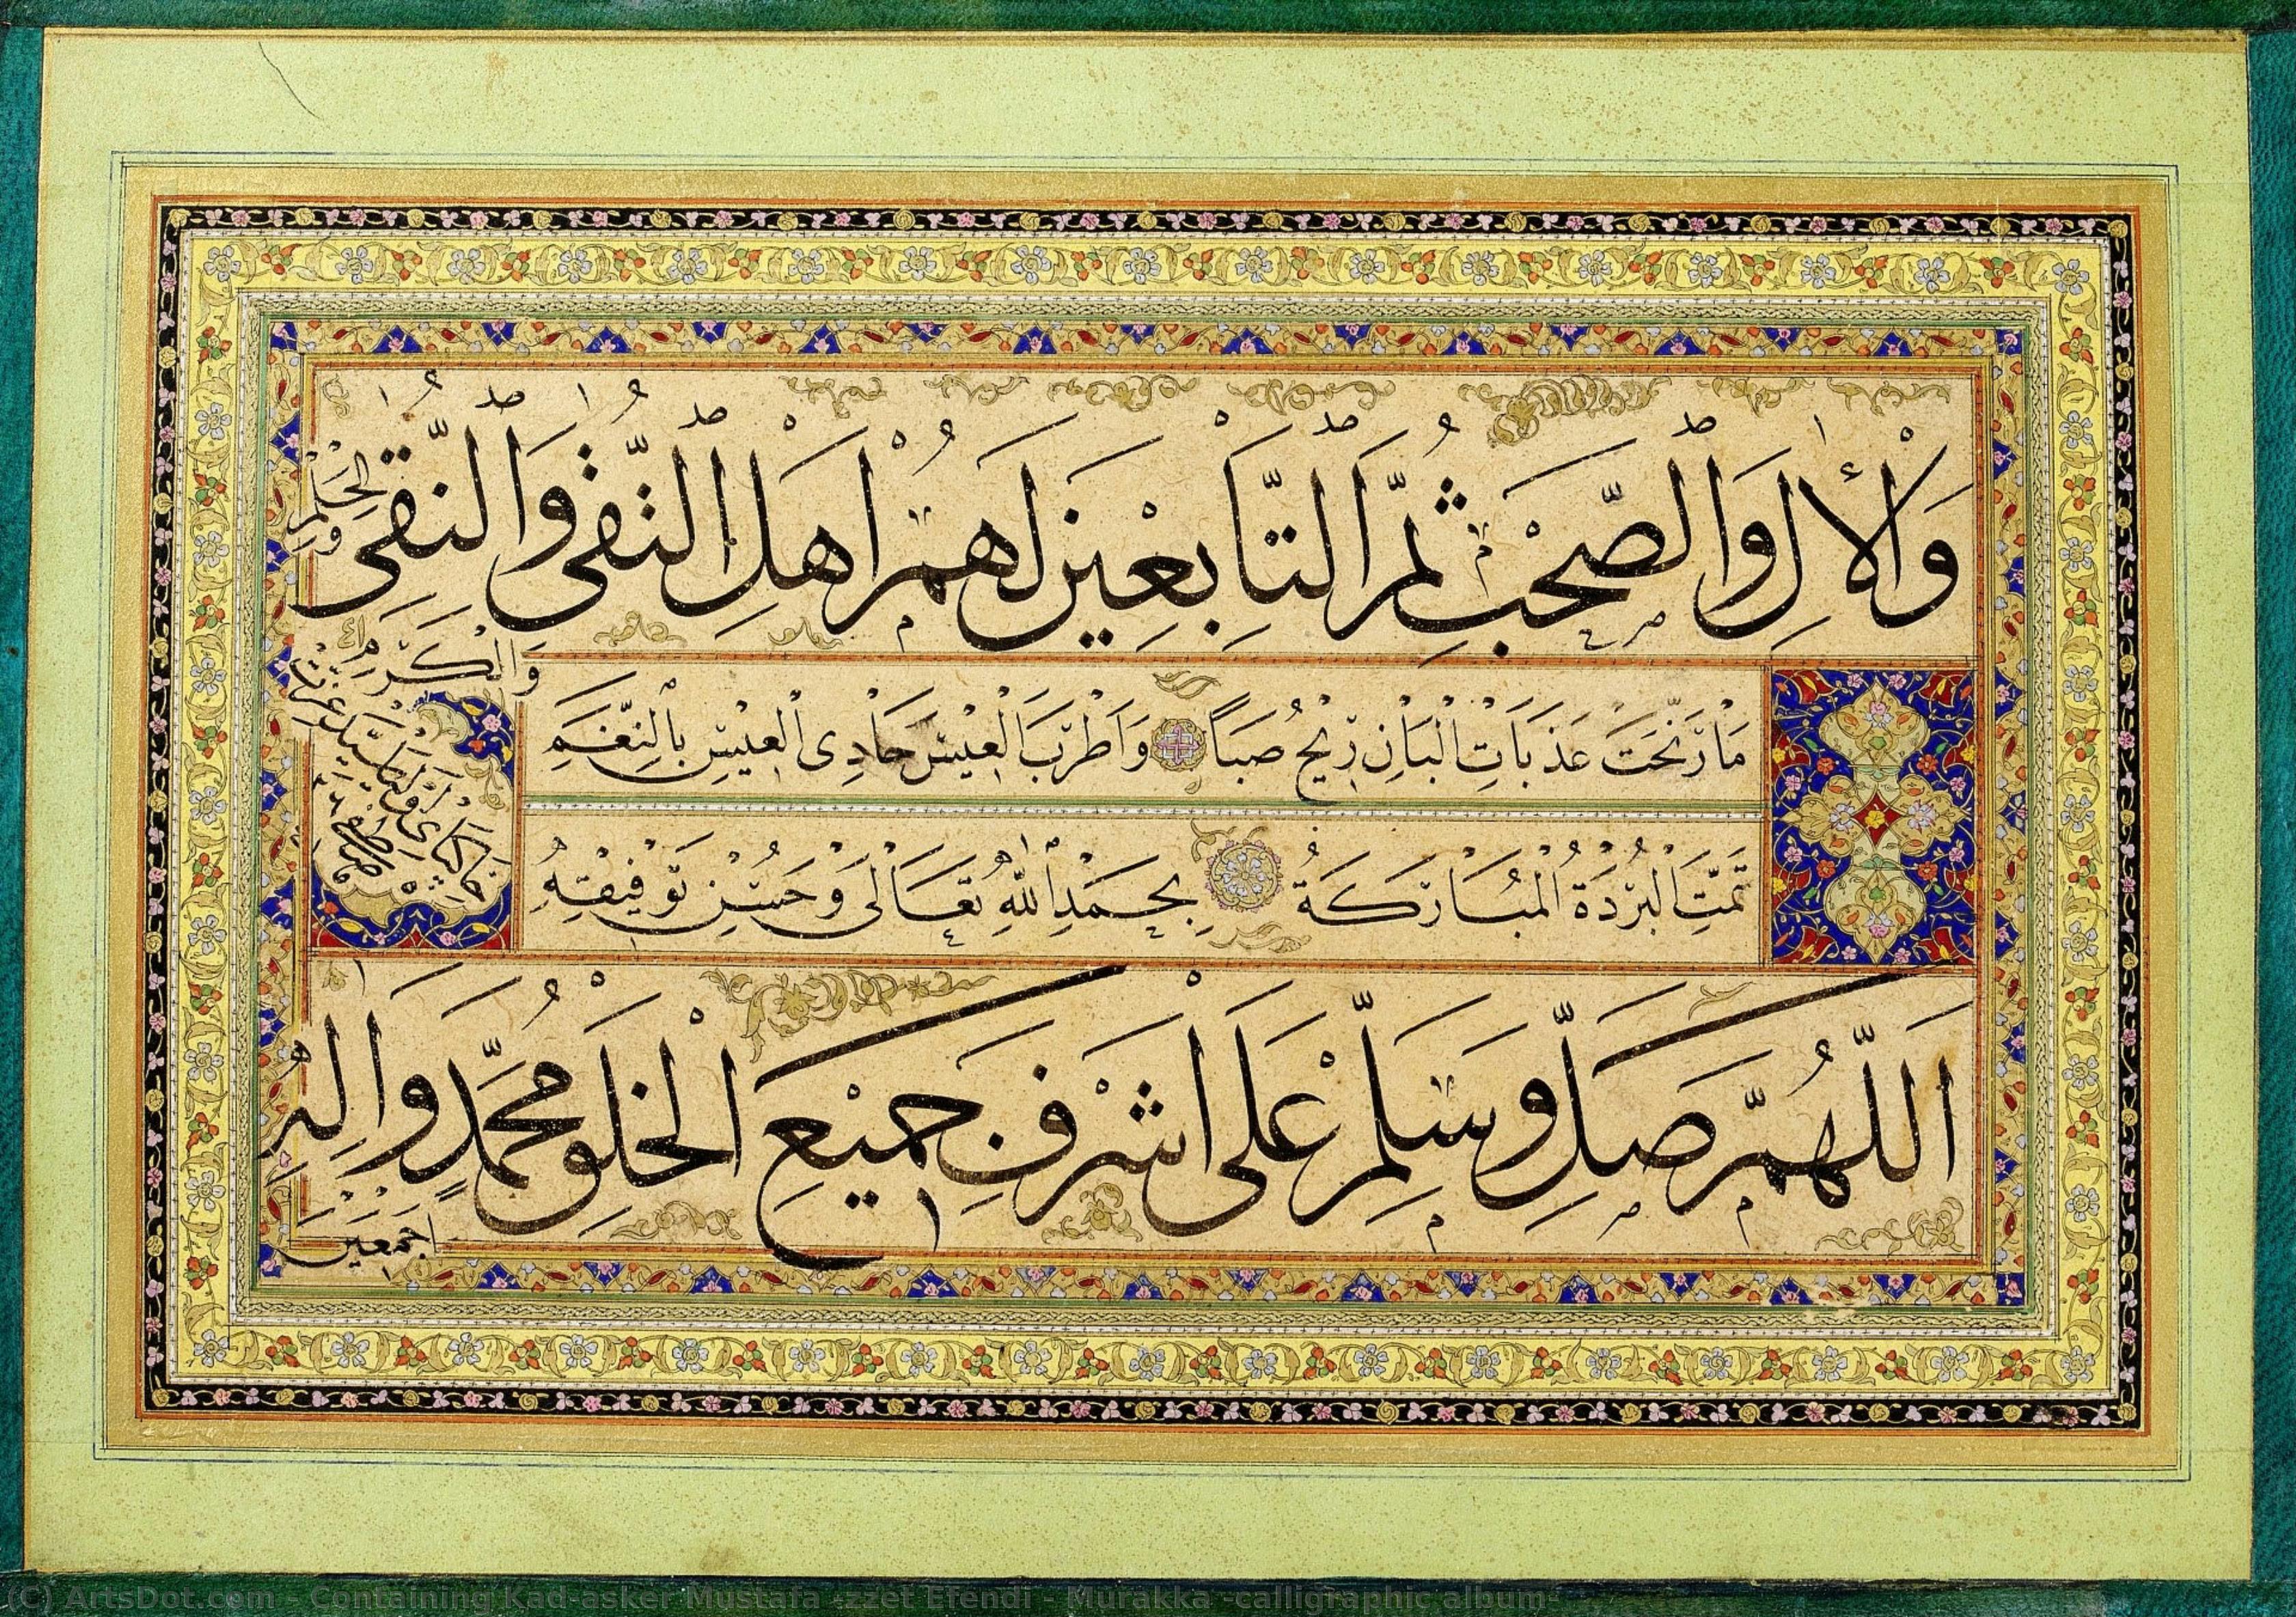 وَالْآلِ وَالصَّحْبِ ثُمَّ التَّابِعِينَ لَهُمْ اَهْلِ التُّقٰى وَالنَّقٰى وَالْحِلْمِ
وَالْكَرَمِ
مَا رَنَّحَتْ عَذَبَاتِ الْبَانِ رِيْحُ صَبًا وَاَطْرَبَ الْعِيْسَ حَادِى الْعِيْسِ بِالنَّغَمِ
تَمَّتِ الْبُرْدَةُ الْمُبَارَكَةُ بِحَمْدِ اللّٰهِ تَعَالٰى وَحُسْنِ تَوْفِيْقِهِ
اَللّٰهُمَّ صَلِّ وَسَلِّمْ عَلٰى اَشْرَفِ جَمِيْعِ الْخَلْقِ مُحَمَّدٍ وَاٰلِهِ
اَجْمَعِيْنَ
(C) ArtsDot.com - Containing Kad-asker Mustafa -zzet Efendi - Murakka -calligraphic album-